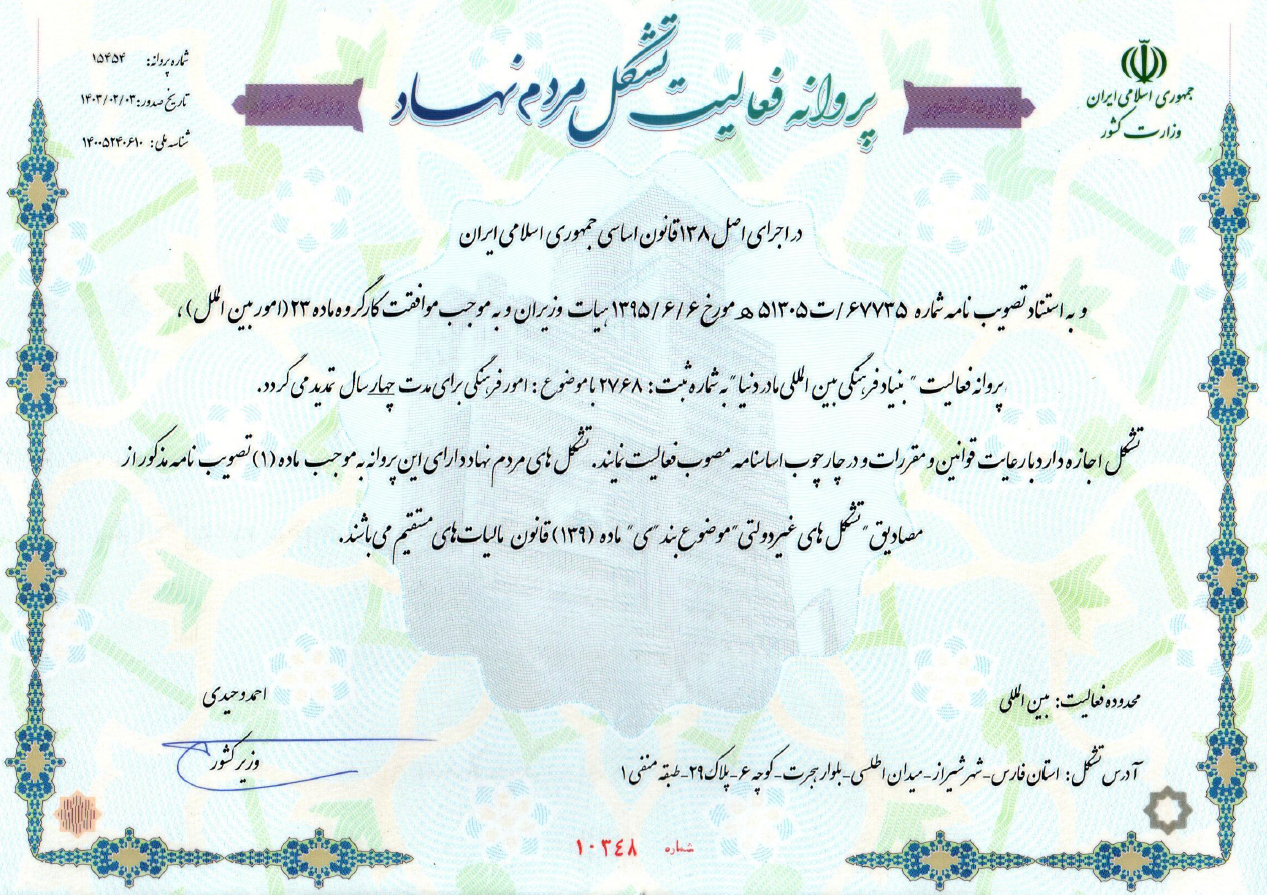 جمهوری اسلامی ایران
وزارت کشور
پروانه فعالیت تشکل مردم نهاد
وزارت کشور
وزارت کشور
شماره پروانه: ۱۵۴۵۴
تاریخ صدور: ۱۴۰۳/۰۲/۰۳
شناسه ملی: ۱۴۰۰۵۲۴۰۶۱۰
در اجرای اصل ۱۳۸ قانون اساسی جمهوری اسلامی ایران
و به استناد تصویب نامه شماره ۶۷۷۳۵/ت۵۱۳۰۵ هـ مورخ ۱۳۹۵/۶/۶ هیات وزیران و به موجب موافقت کارگروه ماده ۲۳ (امور بین الملل)،
پروانه فعالیت "بنیاد فرهنگی بین المللی مادر دنیا" به شماره ثبت: ۲۷۶۸ با موضوع: امور فرهنگی برای مدت چهار سال تمدید می گردد.
تشکل اجازه دارد با رعایت قوانین و مقررات و در چارچوب اساسنامه مصوب فعالیت نمایند. تشکل های مردم نهاد دارای این پروانه به موجب ماده (۱) تصویب نامه مذکور از
مصادیق "تشکل های غیردولتی" موضوع بند "ی" ماده (۱۳۹) قانون مالیات های مستقیم می باشند.
محدوده فعالیت: بین المللی
آدرس تشکل: استان فارس-شهر شیراز-میدان اطلسی-بلوار هجرت-کوچه ۶-پلاک ۲۹-طبقه منفی ۱
احمد وحیدی
وزیر کشور
شماره ۱۰۳۴۸